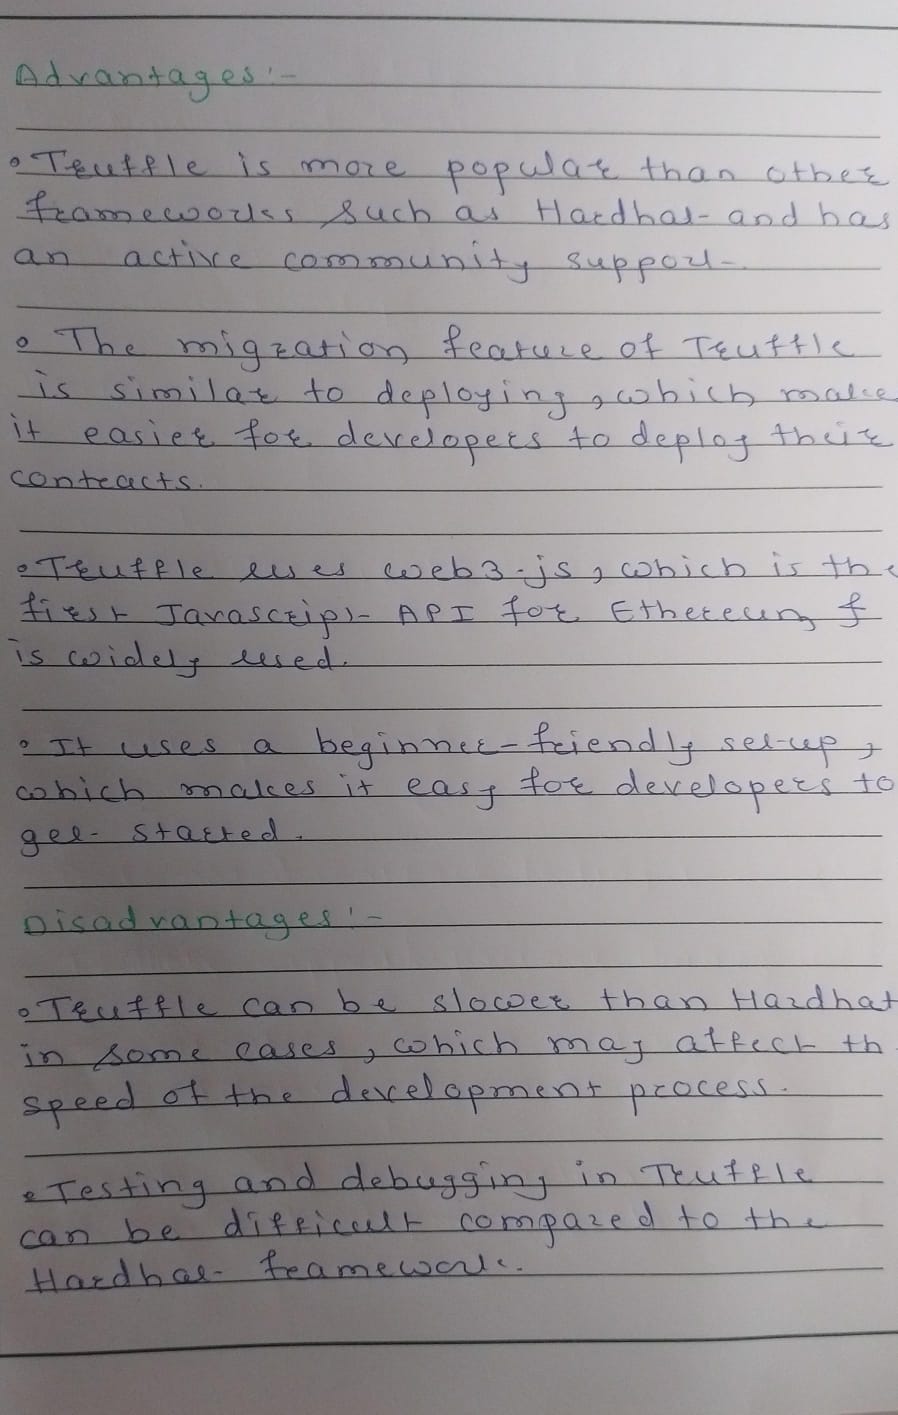 Advantages :-
• Truffle is more popular than other
frameworks such as Hardhat and has
an active community support.
• The migration feature of Truffle
is similar to deploying, which make
it easier for developers to deploy their
contracts.
• Truffle uses web3.js, which is the
first Javascript API for Ethereum &
is widely used.
• It uses a beginner-friendly set-up,
which makes it easy for developers to
get started.
Disadvantages :-
• Truffle can be slower than Hardhat
in some cases, which may affect th
speed of the development process.
• Testing and debugging in Truffle
can be difficult compared to the
Hardhat framework.